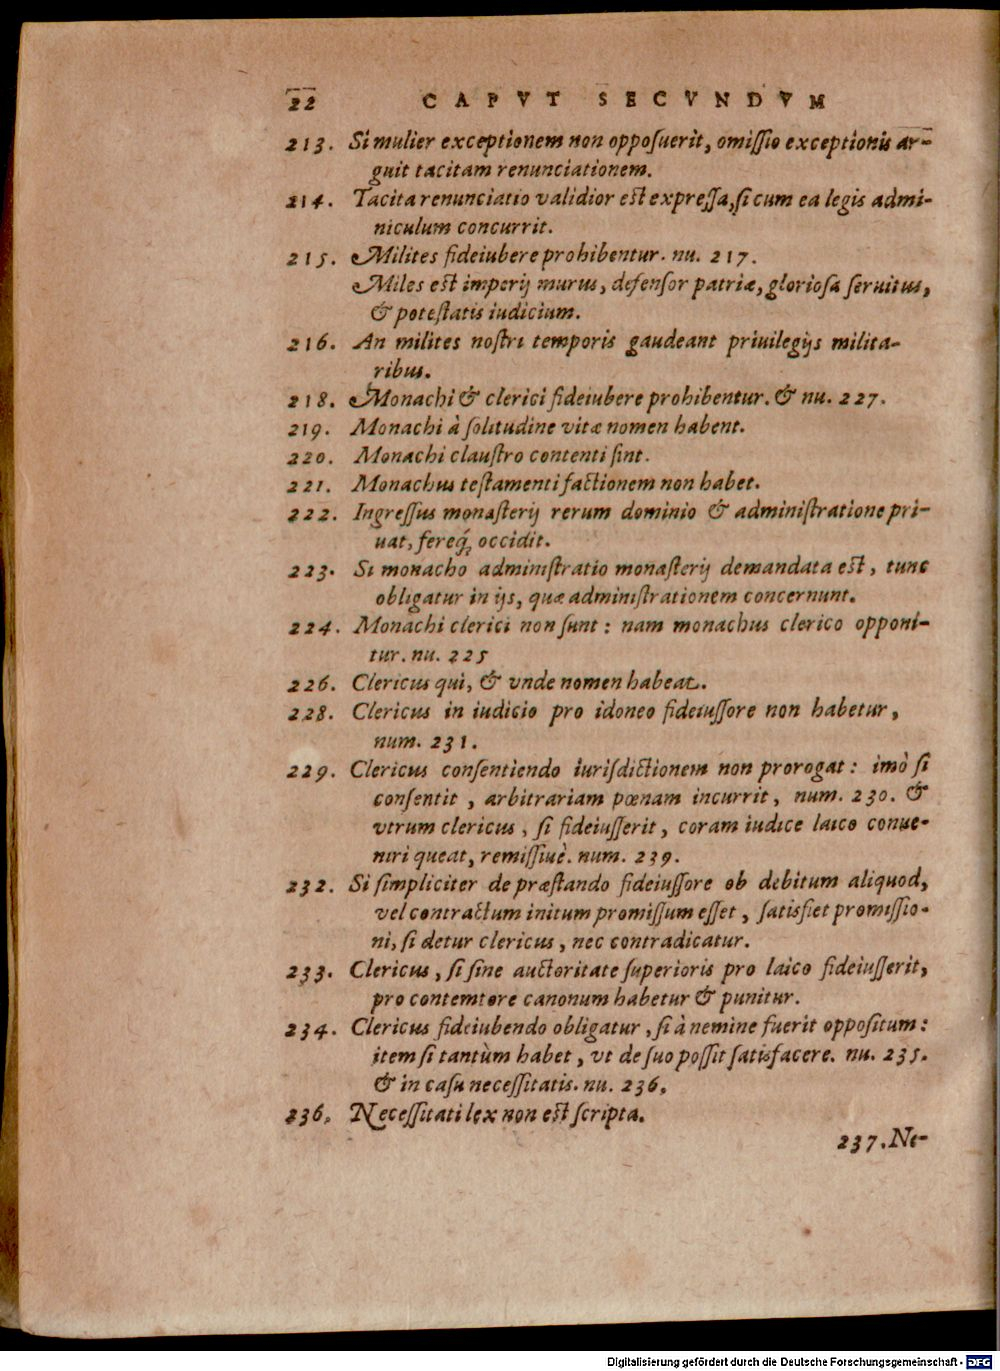 22 CAPVT SECVNDVM
213. Si mulier exceptionem non opposuerit, omissio exceptionis ar-
guit tacitam renunciationem.
214. Tacita renunciatio validior est expressa, si cum ea legis admi-
niculum concurrit.
215. Milites fideiubere prohibentur. nu. 217.
Miles est imperij murus, defensor patriæ, gloriosa seruitus,
& potestatis iudicium.
216. An milites nostri temporis gaudeant priuilegijs milita-
ribus.
218. Monachi & clerici fideiubere prohibentur. & nu. 227.
219. Monachi à solitudine vitæ nomen habent.
220. Monachi claustro contenti sint.
221. Monachus testamenti factionem non habet.
222. Ingressus monasterij rerum dominio & administratione pri-
uat, fereq́; occidit.
223. Si monacho administratio monasterij demandata est, tunc
obligatur in ijs, quæ administrationem concernunt.
224. Monachi clerici non sunt: nam monachus clerico opponi-
tur. nu. 225
226. Clericus qui, & vnde nomen habeat.
228. Clericus in iudicio pro idoneo fideiussore non habetur,
num. 231.
229. Clericus consentiendo iurisdictionem non prorogat: imò si
consentit, arbitrariam pœnam incurrit, num. 230. &
vtrum clericus, si fideiusserit, coram iudice laico conue-
niri queat, remissiuè. num. 239.
232. Si simpliciter de præstando fideiussore ob debitum aliquod,
vel contractum initum promissum esset, satisfiet promissio-
ni, si detur clericus, nec contradicatur.
233. Clericus, si sine auctoritate superioris pro laico fideiusserit,
pro contemtore canonum habetur & punitur.
234. Clericus fideiubendo obligatur, si à nemine fuerit oppositum:
item si tantùm habet, vt de suo possit satisfacere. nu. 235.
& in casu necessitatis. nu. 236.
236. Necessitati lex non est scripta.
237. Ne-
Digitalisierung gefördert durch die Deutsche Forschungsgemeinschaft - DFG